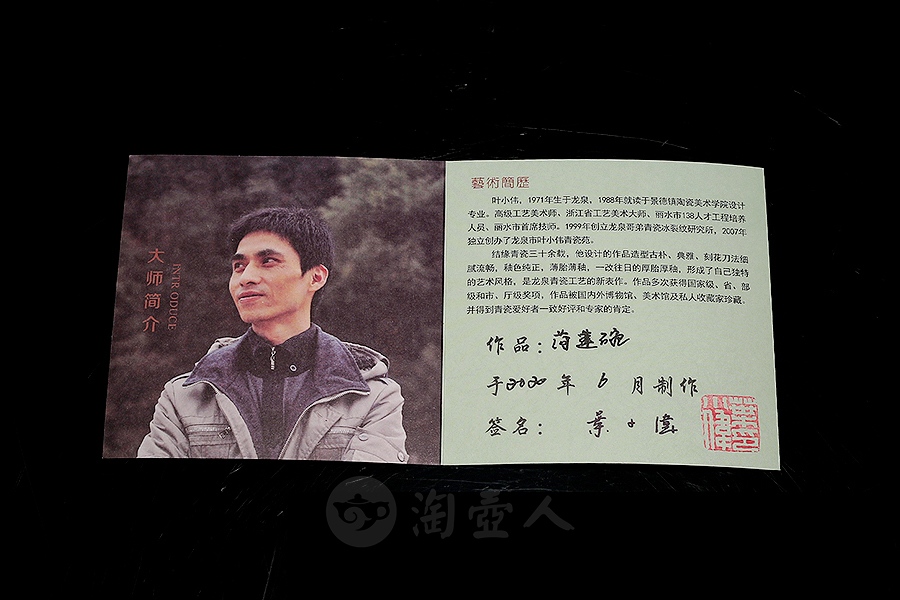 大师简介
INTRODUCE
藝術简歷
叶小伟，1971年生于龙泉，1988年就读于景德镇陶瓷美术学院设计
专业。高级工艺美术师、浙江省工艺美术大师、丽水市138人才工程培养
人员、丽水市首席技师。1999年创立龙泉哥弟青瓷冰裂纹研究所，2007年
独立创办了龙泉市叶小伟青瓷苑。
结缘青瓷三十余载，他设计的作品造型古朴、典雅、刻花刀法细
腻流畅，釉色纯正，薄胎薄釉，一改往日的厚胎厚釉，形成了自己独特
的艺术风格，是龙泉青瓷工艺的新表作。作品多次获得国家级、省、部
级和市、厅级奖项，作品被国内外博物馆、美术馆及私人收藏家珍藏，
并得到青瓷爱好者一致好评和专家的肯定。
作品：荷莲碗
于2020年6月制作
签名：葉小偉
淘壶人